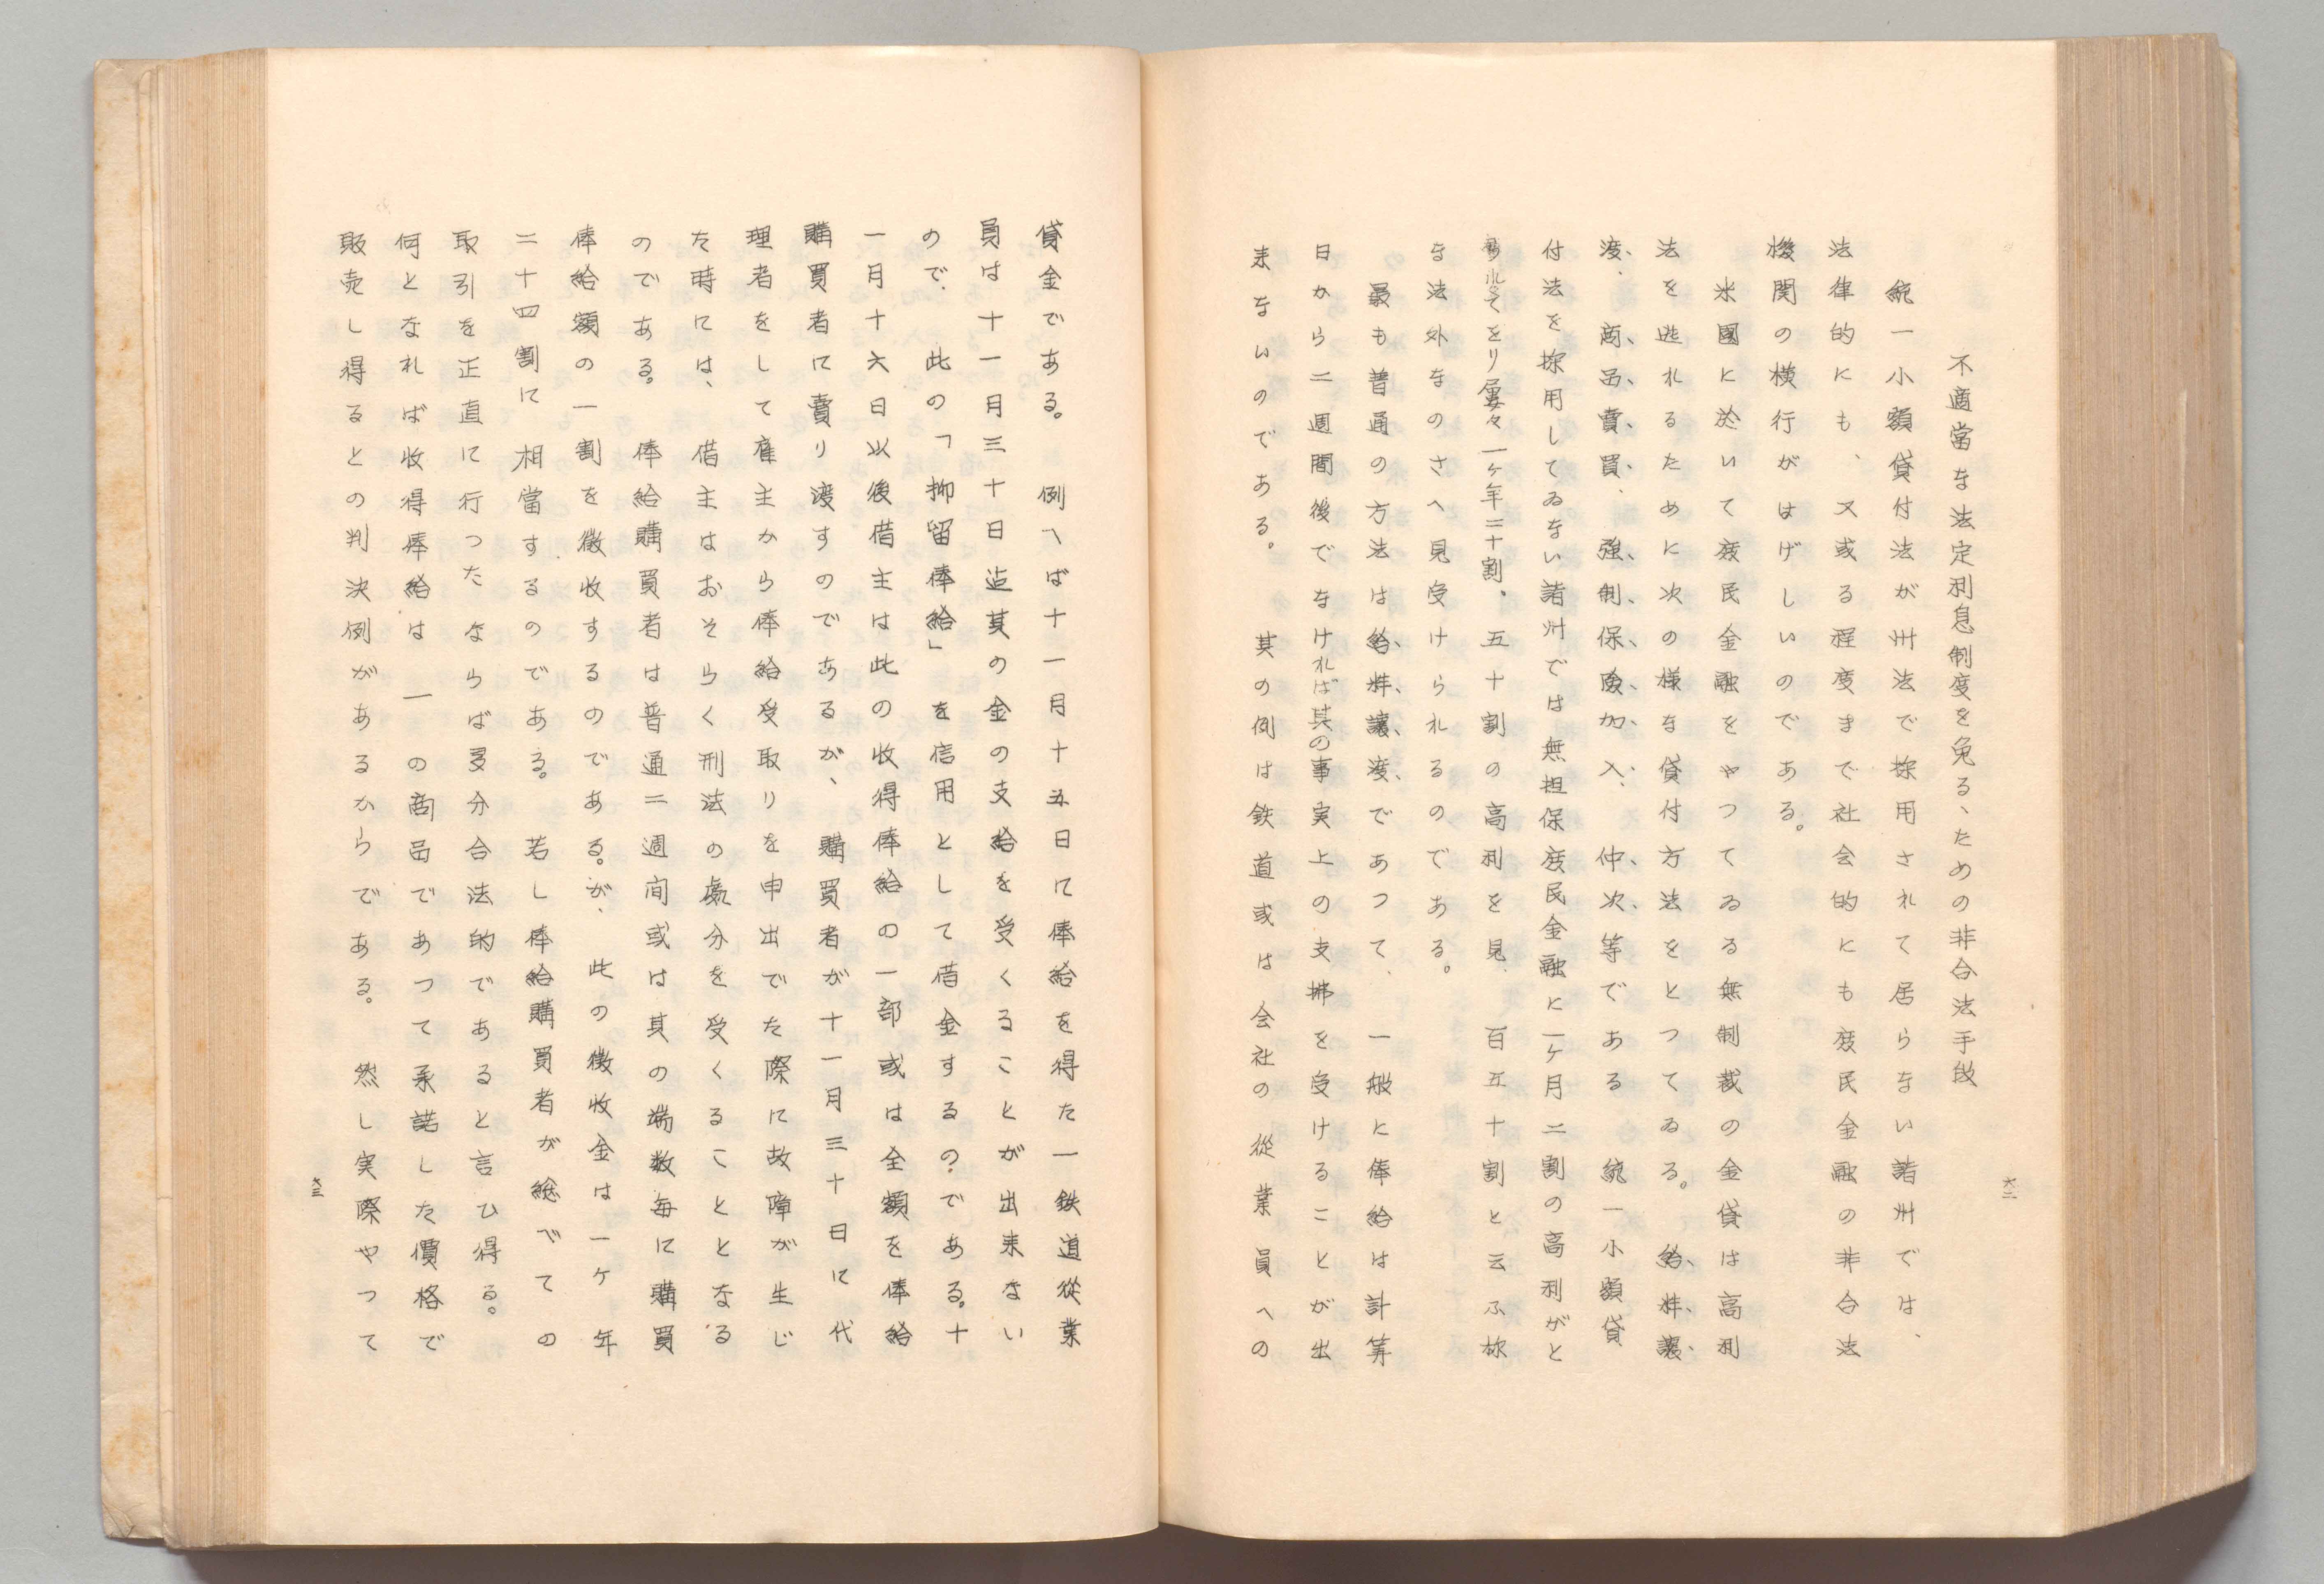 不適當な法定利息制度を免る、ための非合法手段
統一小額貸付法が州法で採用されて居らない諸州では、
法律的にも、又或る程度まで社会的にも庶民金融の非合法
機関の横行がはげしいのである。
米國に於いて庶民金融をやつてゐる無制裁の金貸は高利
法を逃れるために次の様な貸付方法をとつてゐる。給料讓
渡、商品賣買、強制保険加入、仲次等である 統一小額貸
付法を採用してゐない諸州では無担保庶民金融に一ケ月二割の高利がと
られてをり屢々一ケ年三十割、五十割の高利を見、百五十割と云ふ様
な法外なのさへ見受けられるのである。
最も普通の方法は給料讓渡であつて、一般に俸給は計算
日から二週間後でなければ其の事実上の支拂を受けることが出
来ないのである。 其の例は鉄道或は会社の従業員への
六二
貸金である。 例へば十一月十五日に俸給を得た一鉄道從業
員は十一月三十日迄其の金の支給を受くることが出来ない
ので、此の「抑留俸給」を信用として借金するのである。十
一月十六日以後借主は此の收得俸給の一部或は全額を俸給
購買者に賣り渡すのであるが、購買者が十一月三十日に代
理者をして雇主から俸給受取りを申出でた際に故障が生じ
た時には、借主はおそらく刑法の處分を受くることとなる
のである。 俸給購買者は普通二週间或は其の端数毎に購買
俸給額の一割を徴收するのである。が、此の徴收金は一ケ年
二十四割に相當するのである。 若し俸給購買者が総べての
取引を正直に行つたならば多分合法的であると言ひ得る。
何となれば收得俸給は一の商品であつて承諾した價格で
販売し得るとの判決例があるからである。 然し実際やつて
六三